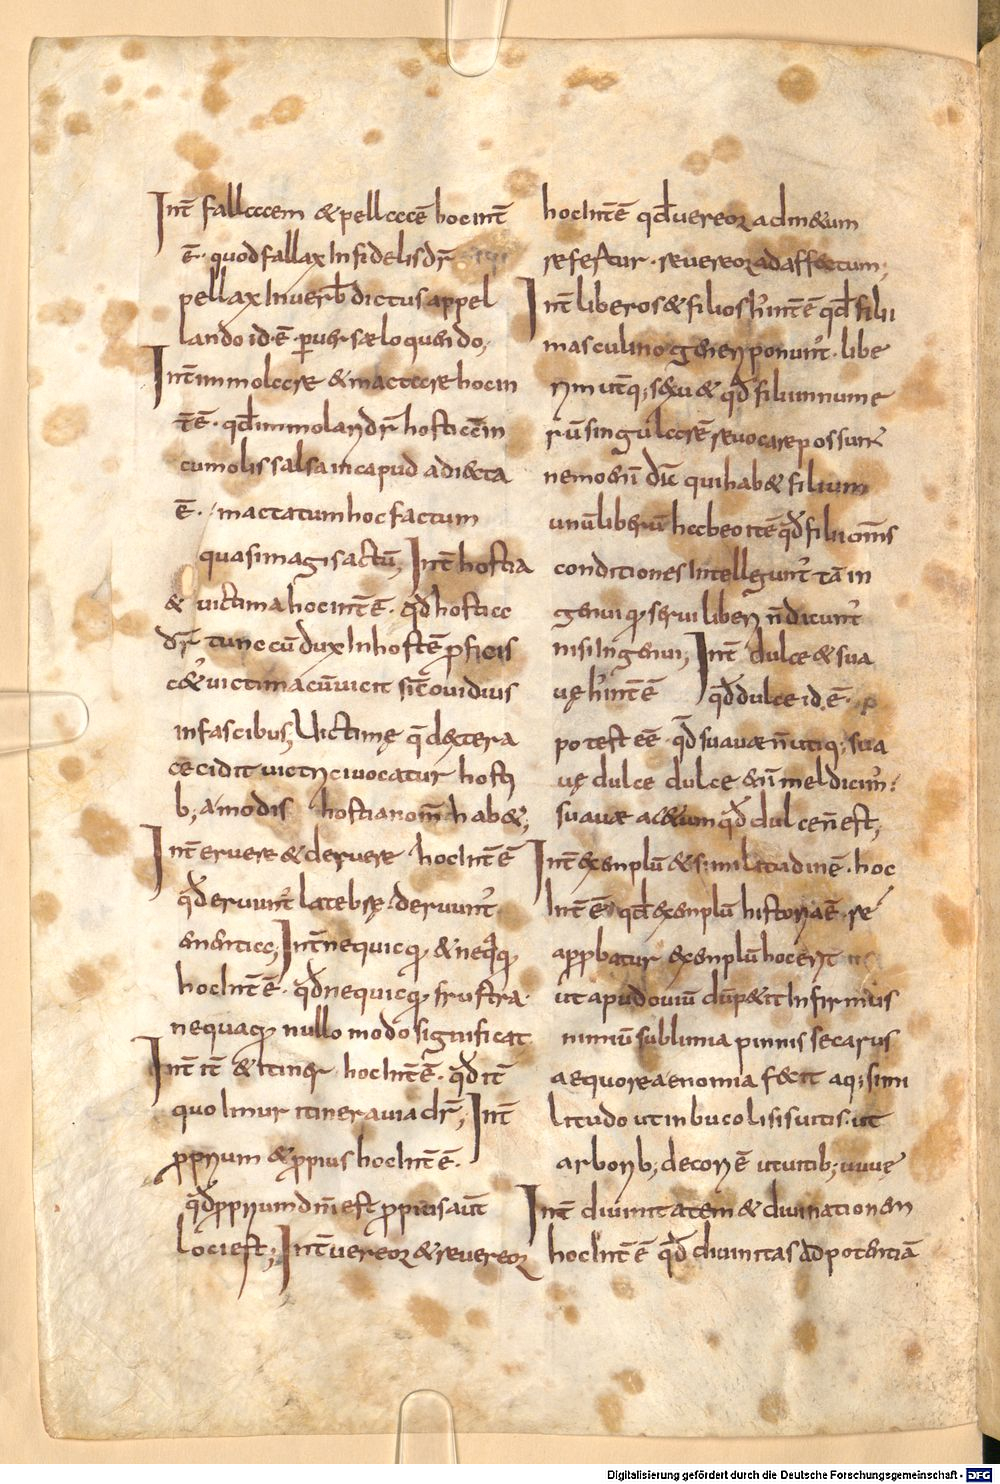 Int̄ fallacem & pellacē hoc int̄
ē· quod fallax Infidelis dr̄
pellax In verb̄ dictus appel
lando id·ē· per uersae loquendo;
Int̄ immolare & mactare hoc in
t̄ ē· qđ immolan dr̄ hostia cē in
cumolis salsa in capud adiecta
ē· mactatum hoc factum
quasi magis actū; Int̄ hostia
& uictima hoc int̄ ē· qđ hostia
dr̄ tunc cū dux In hostē proficis
c& uictima cū uicit sic ouidius
in fascibus; Uictimę q̄ dextera
cecidit uictrici uocatur hosti
b; a modis hostia nom̄ hab&;
Int̄ eruere & deruere hoc Int̄ ē
qđ eruunt̄ latebrę· deruunt̄
enentia; Int̄ nequicq; & neq̄q;
hoc Int̄ ē· qđ nequicq; frustra·
nequaq; nullo modo significat
Int̄ it̄ & itiner· hoc Int̄ ē· qđ it̄
quo Imur itinera uia dr̄; Int̄
p̱prium & p̱pius hoc Int̄ ē·
qđ p̱prium dn̄i est p̱pius aut̄
loci est; Int̄ uereor & reuereor
hoc Int̄ ē qđ uereor ad metum
refertur· reuereor ad affectum;
Int̄ liberos & filios h' int̄ ē qđ filii
masculino genere ponunt̄· libe
ri in utq; sexu & qđ filium nume
rū singularē reuocare possunt̄
nemo enī dic̄ qui hab& filium
unū liberū habeo itē qđ filii om̄s
conditiones Intellegunt̄ tā in
genui q; serui liberi n̄ dicunt̄
nisi Ingenui; Int̄ dulce & sua
uę h' int̄ ē qđ dulce id·ē· p
potest eē qđ suauae n̄ utiq; sua
uę dulce dulce enī mel dicim̄·
suauae acetum qđ dulce n̄ est;
Int̄ exemplū & similitudinē· hoc
Int̄ ē· qđ exemplū historiā ē· re
app̱batur exemplū hoc erit
ut apud ouiū dū petit Infirmus
nimiū sublimia pinnis Secarus
aequorea enomia fecit aq; simi
litudo ut in bucolisis uitis· ut
arborib; decori ē ut uitib; uuuę
Int̄ diuinitatem & diuinationem
hoc Int̄ ē qđ diuinitas ad potentiā
Digitalisierung gefördert durch die Deutsche Forschungsgemeinschaft - DFG